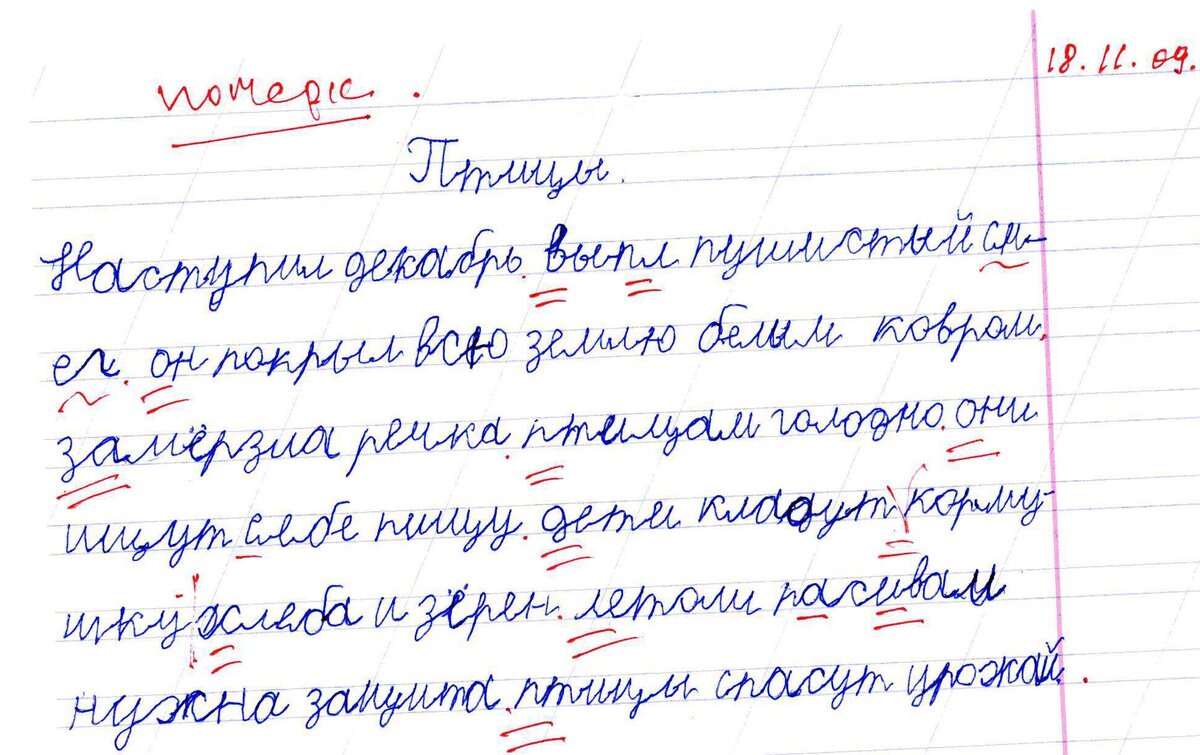 18.11.09.
почерк.
Птицы.
Наступил декабрь. выпл пушистый сн-
ег. он покрыл всю землю белым ковром.
замёрзла речка. птицам голодно. они
ищут себе пищу. дети кладут корму-
шку хлеба и зёрен. летом
нужна защита. птицы спасут урожай.